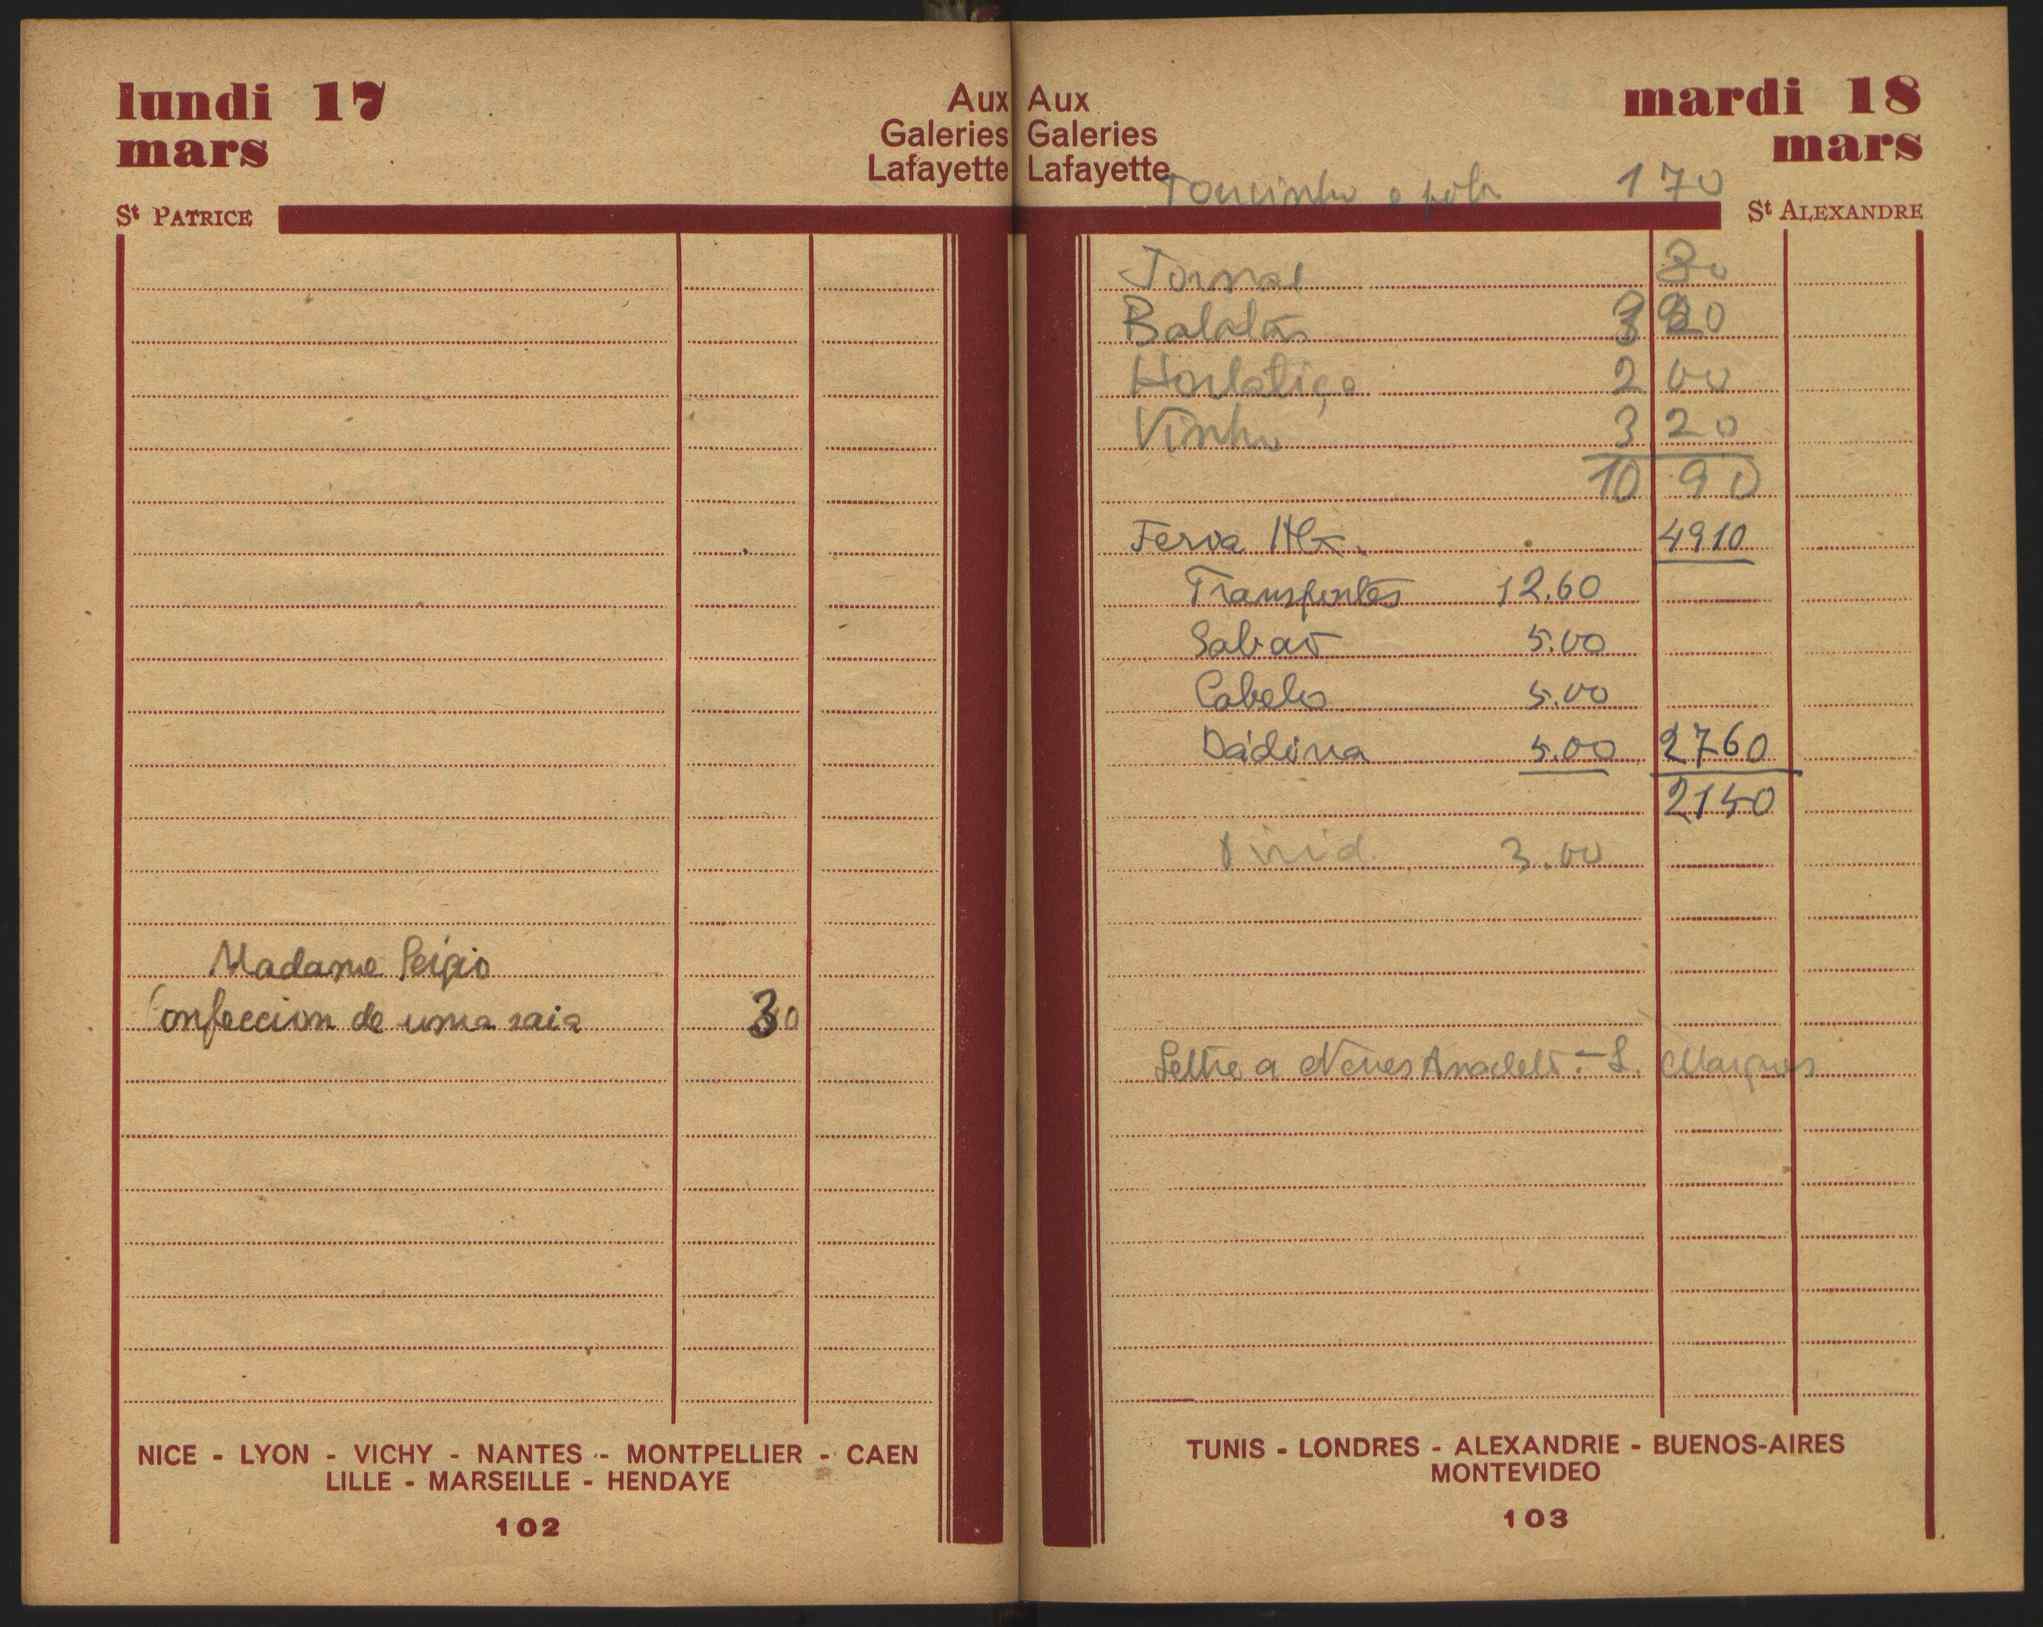 lundi 17
mars
Aux
Galeries
Lafayette
St PATRICE
Madame
Confeccion de uma saia 30
NICE - LYON - VICHY - NANTES - MONTPELLIER - CAEN
LILLE - MARSEILLE - HENDAYE
102
Aux
Galeries
Lafayette
mardi 18
mars
Toucinho e 170
St ALEXANDRE
Jornal
Batatas
Hortaliça 2 00
Vinho 3 20
10 90
4910
Transportes 12.60
Sabão 5.00
Cabelo 5.00
Dádiva 5.00 2760
2150
3.00
Lettre a
TUNIS - LONDRES - ALEXANDRIE - BUENOS-AIRES
MONTEVIDEO
103